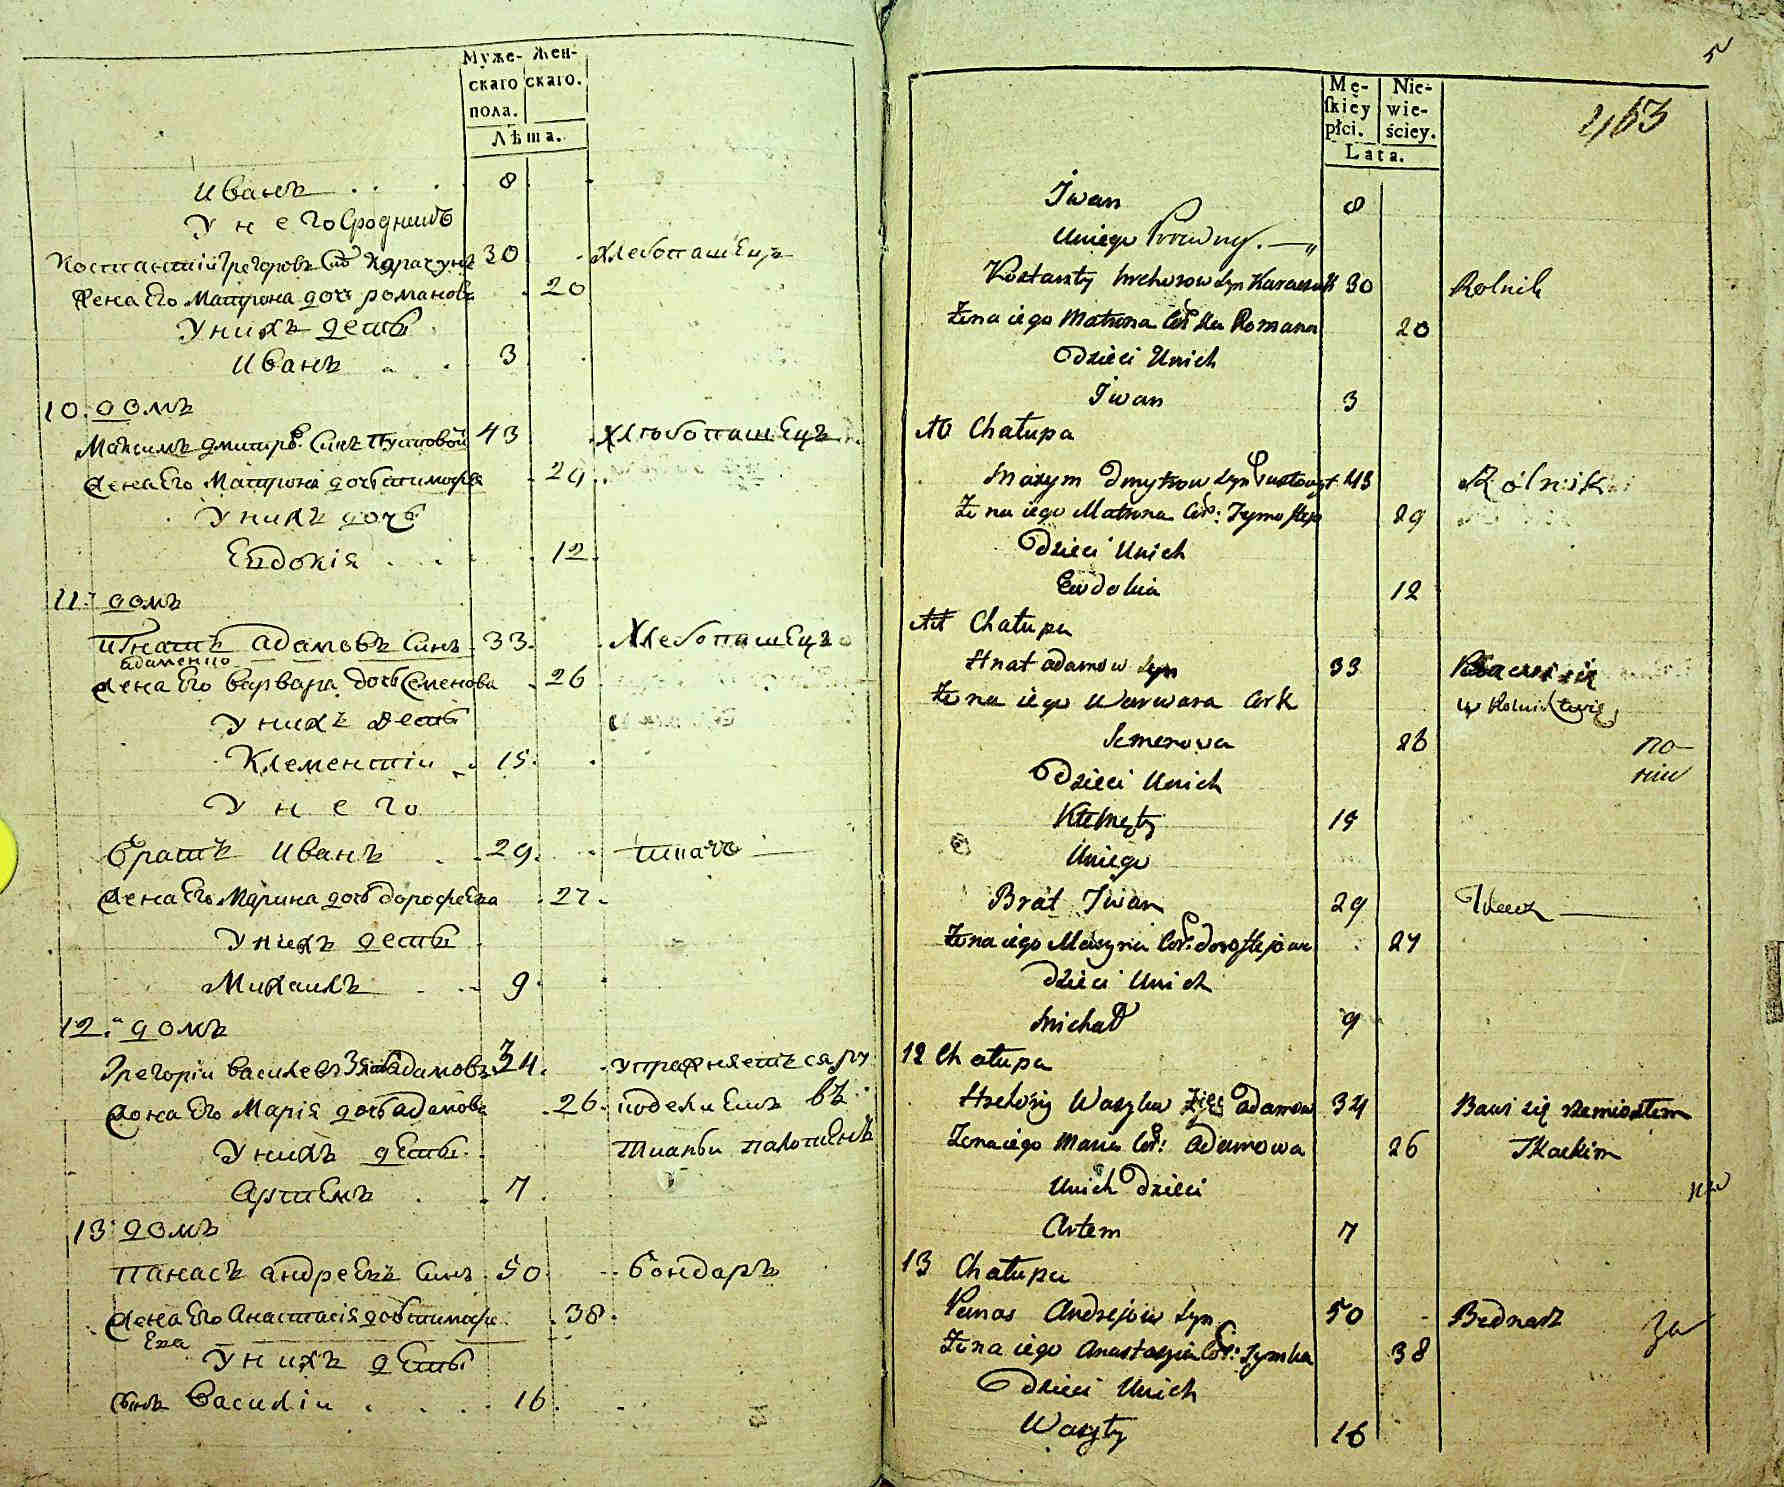 Муже- Жен-
скаго скаго.
пола.
Лѣта.
Иванъ 8
У него Сродникъ
Костантій Грегоровъ Сынъ Карачунъ 30 хлебопашецъ
Жена Его Матрона дочь романова 20
У нихъ дети
Иванъ 3
10. домъ
Максимъ дмитров Синъ Пустовой 43 хлѣбопашецъ
Жена Его Матрона дочь тимофѣева 29
У нихъ дочь
Евдокія 12
11. домъ
Игнатъ адамовъ Синъ 33 Хлебопашецъ
адаменко
Жена Его варвара дочь Семенова 26
У нихъ дети
Клементіи 15
У него
братъ Иванъ 29 ткачъ
Жена Его Марина дочь дорофеева 27
У нихъ дети
Михаилъ 9
12. домъ
Грегоріи василевъ Зять адамовъ 34 упражняетъся ру
Жена Его Марія дочь адамова 26 коделиемъ въ
У нихъ дети тканьи полотненъ
Артемъ 7
13 домъ
Панасъ андреевъ Синъ 50 бондаръ
Жена Его Анастасія дочь тимофе 38
Ева
У нихъ дети
Синъ Василіи 16
5
Mę- Nie-
skiey wie-
płci. ściey.
Lata.
Iwan 8
Uniego Krewny
Kostanty Hrehorow Syn Karaczun 30 Rolnik
Żena iego Matrona Cór Romana 20
Dzieci Unich
Iwan 3
10 Chałupa
Maxym Dmytrow Syn Pustowoyt 43 Rólnik
Żena iego Matrona Cór: Tymofieja 29
Dzieci Unich
Ewdokia 12
11 Chałupa
Hnat adamow Syn 33 Bawi się
w Rolnictwie
Żena iego Warwara Cork
Semenowa 26
Dzieci Unich
Klemęty 15
Uniego
Brat Iwan 29 Tkacz
Żena iego Maryna Cór: dorofiejowa 27
dzieci Unich
Michał 9
12 Chałupa
Hrehory Wasylow Zięć adamow 34 Bawi się rzemiosłem
Żena iego Maria Cór: adamowa 26 Tkackim
Unich Dzieci
Artem 7
13 Chałupa
Panas Andrejow Syn 50 Bednarz
Żena iego Anastazia Cór: Tymka 38
Dzieci Unich
Wasyly 16